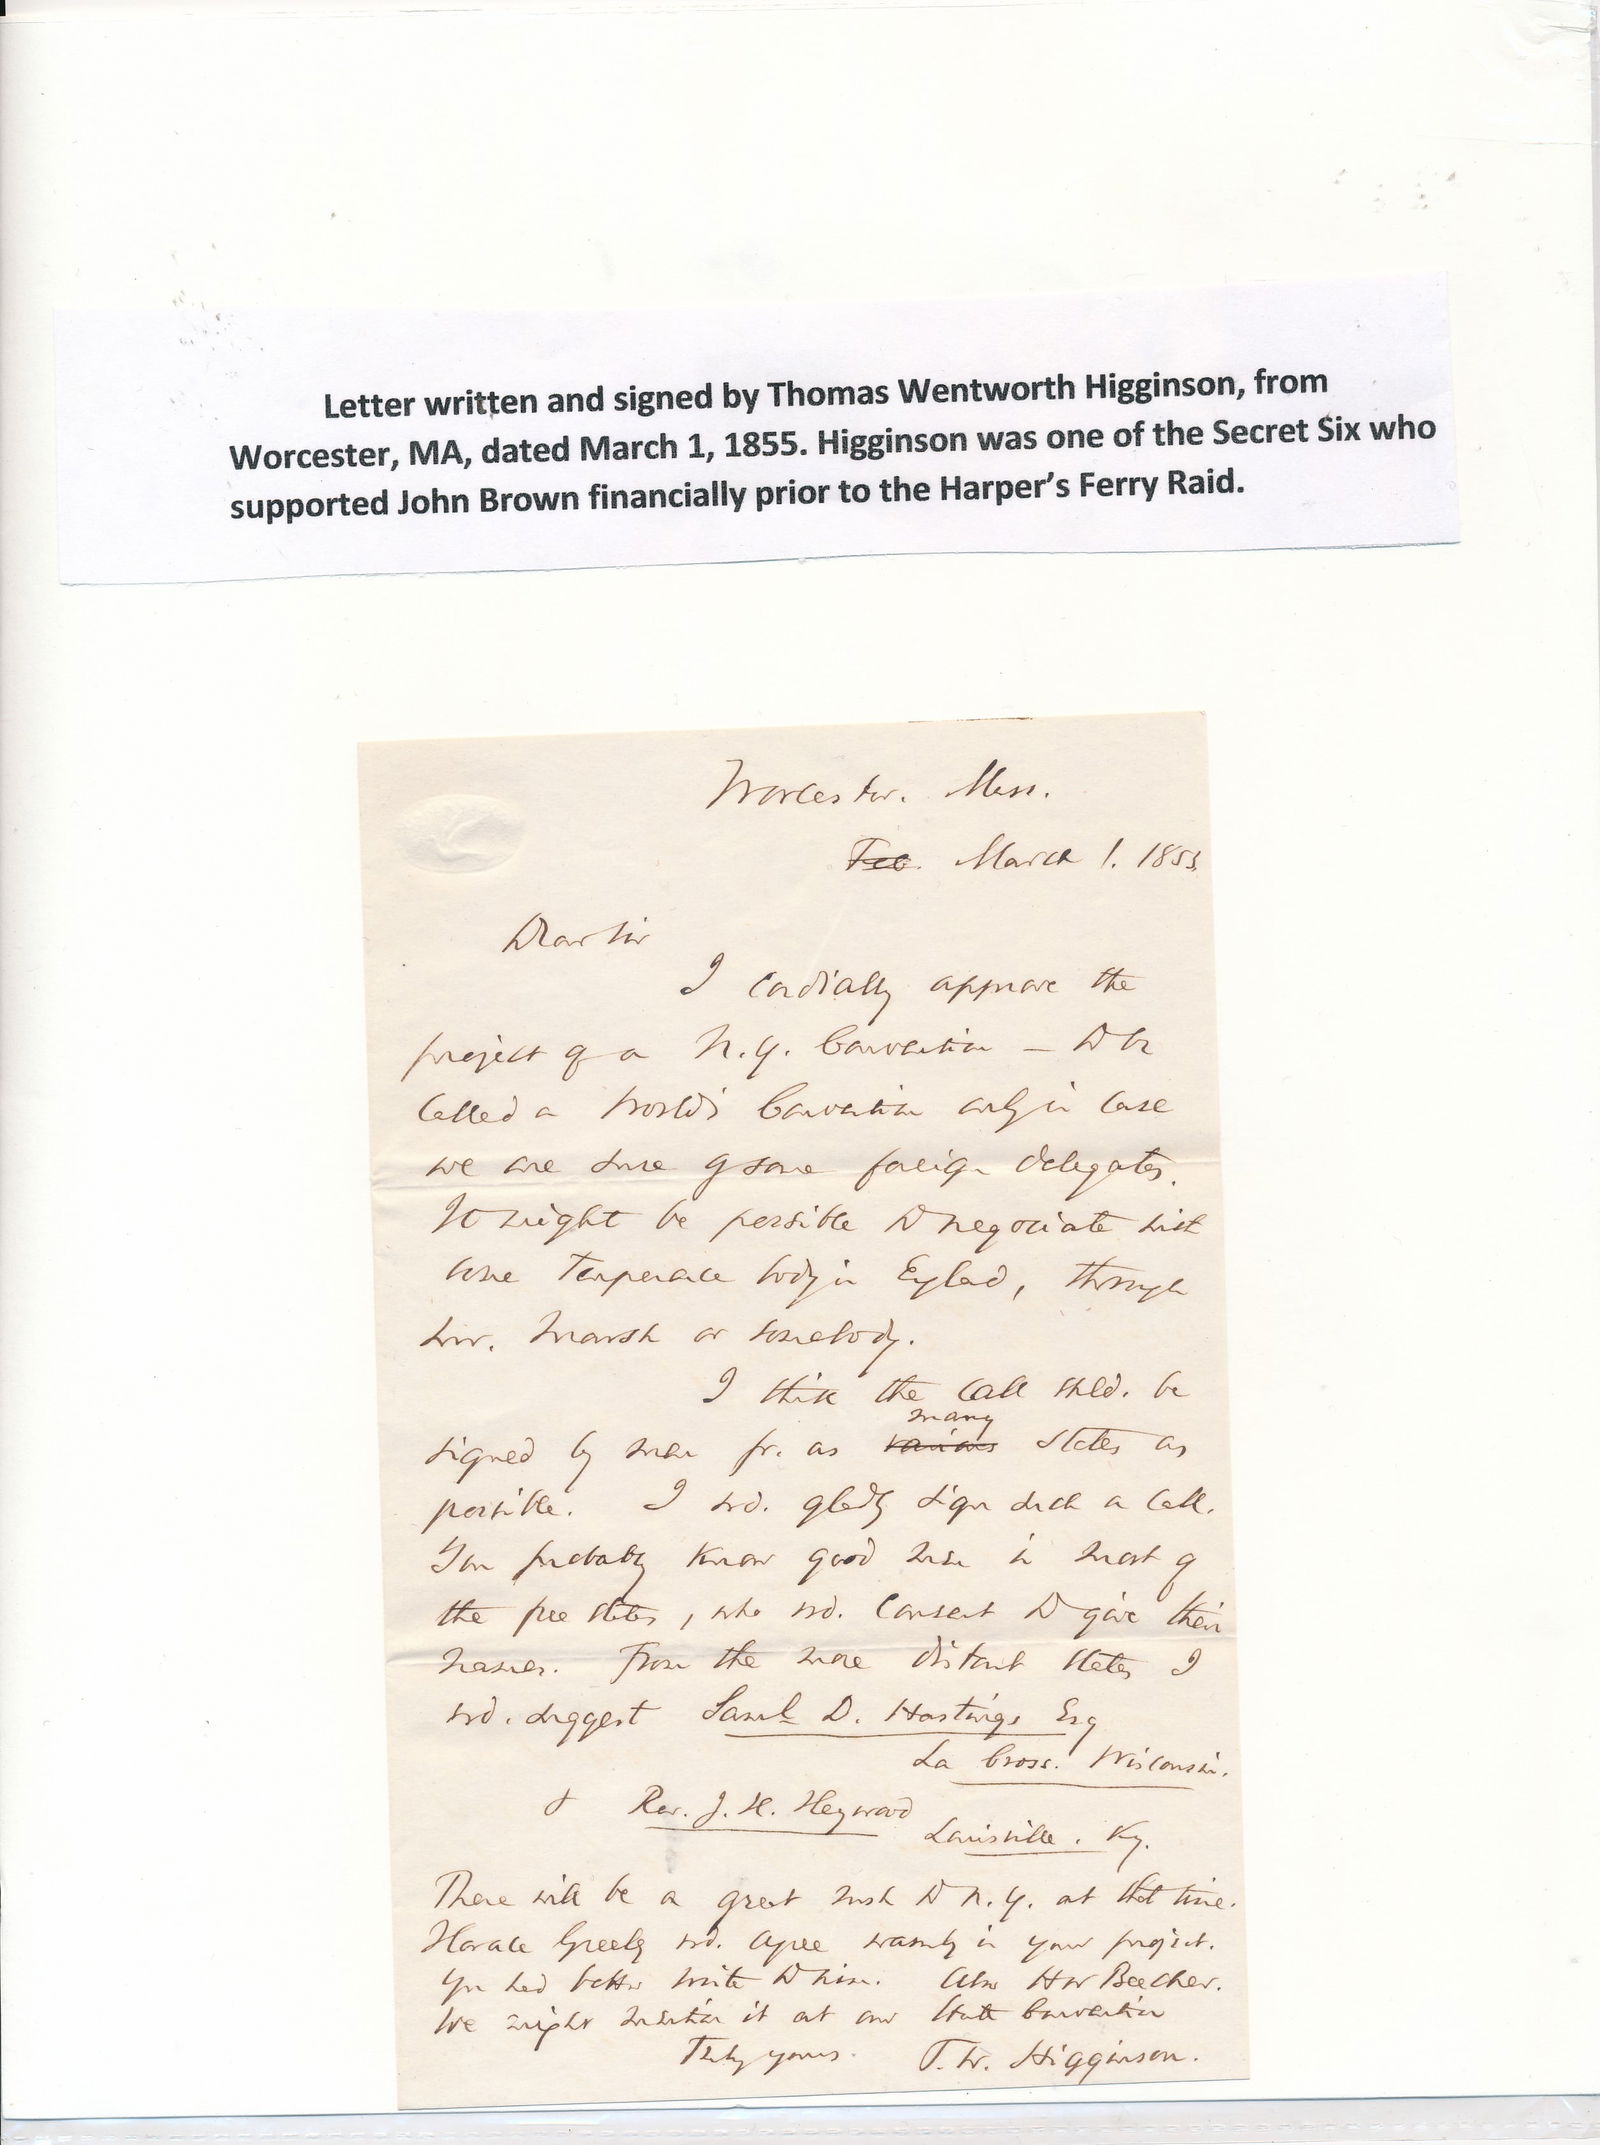 Letter written and signed by Thomas Wentworth Higginson, from
Worcester, MA, dated March 1, 1855. Higginson was one of the Secret Six who
supported John Brown financially prior to the Harper's Ferry Raid.
Worcester. Mass.
Feb. March 1. 1853
Dear Sir
I cordially approve the
project of a N.Y. Convention – to be
called a World's Convention only in case
we are sure of some foreign delegates.
It might be possible to negociate with
some Temperance body in England, through
Mr. Marsh or somebody.
I think the call shld. be
many
signed by men fr. as various states as
possible. I wd. gladly sign such a call.
You probably know good men in most of
the free states, who wd. consent to give their
names. From the more distant states I
wd. suggest Saml. D. Hastings Esq
La Cross. Wisconsin.
& Rev. J. H. Heywood
Louisville. Ky.
There will be a great rush to N.Y. at that time.
Horace Greely wd. agree warmly in your project.
You had better write to him. Also H W Beecher.
We might mention it at our State Convention
Truly yours. T. W. Higginson.